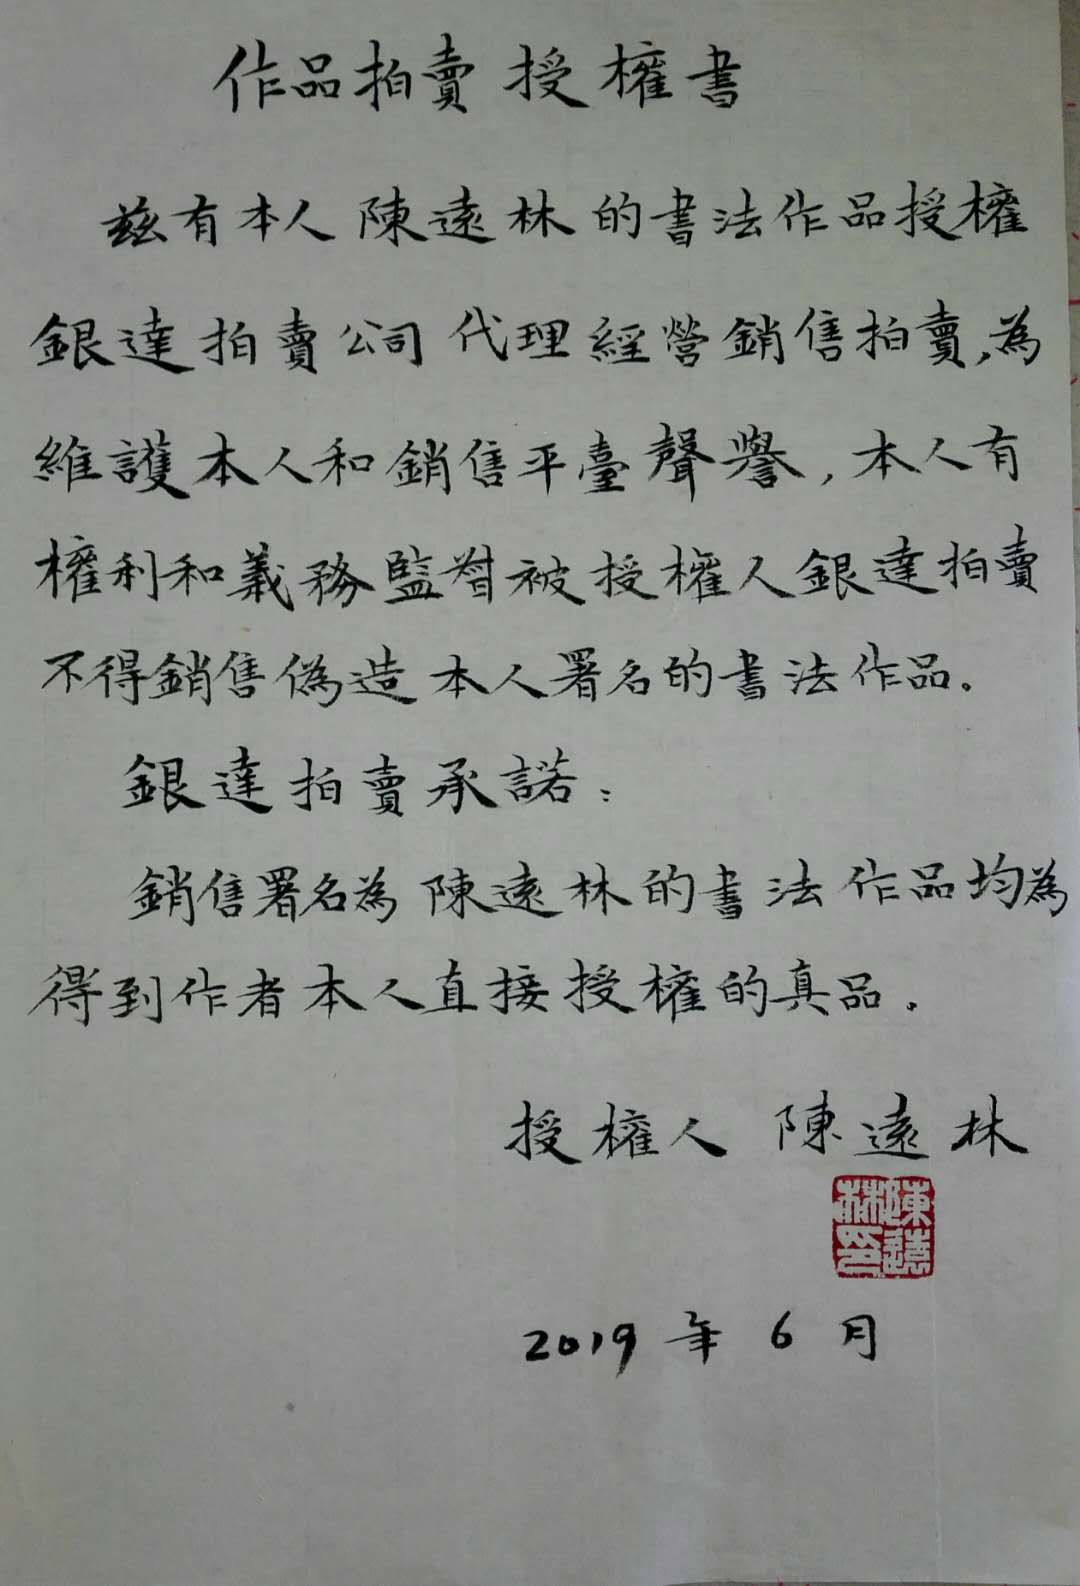 作品拍賣授權書
兹有本人陳遠林的書法作品授權
銀達拍賣公司代理經營銷售拍賣,為
維護本人和銷售平臺聲譽,本人有
權利和義務監督被授權人銀達拍賣
不得銷售偽造本人署名的書法作品。
銀達拍賣承諾:
銷售署名為陳遠林的書法作品均為
得到作者本人直接授權的真品.
授權人 陳遠林
陳遠林印
2019年6月